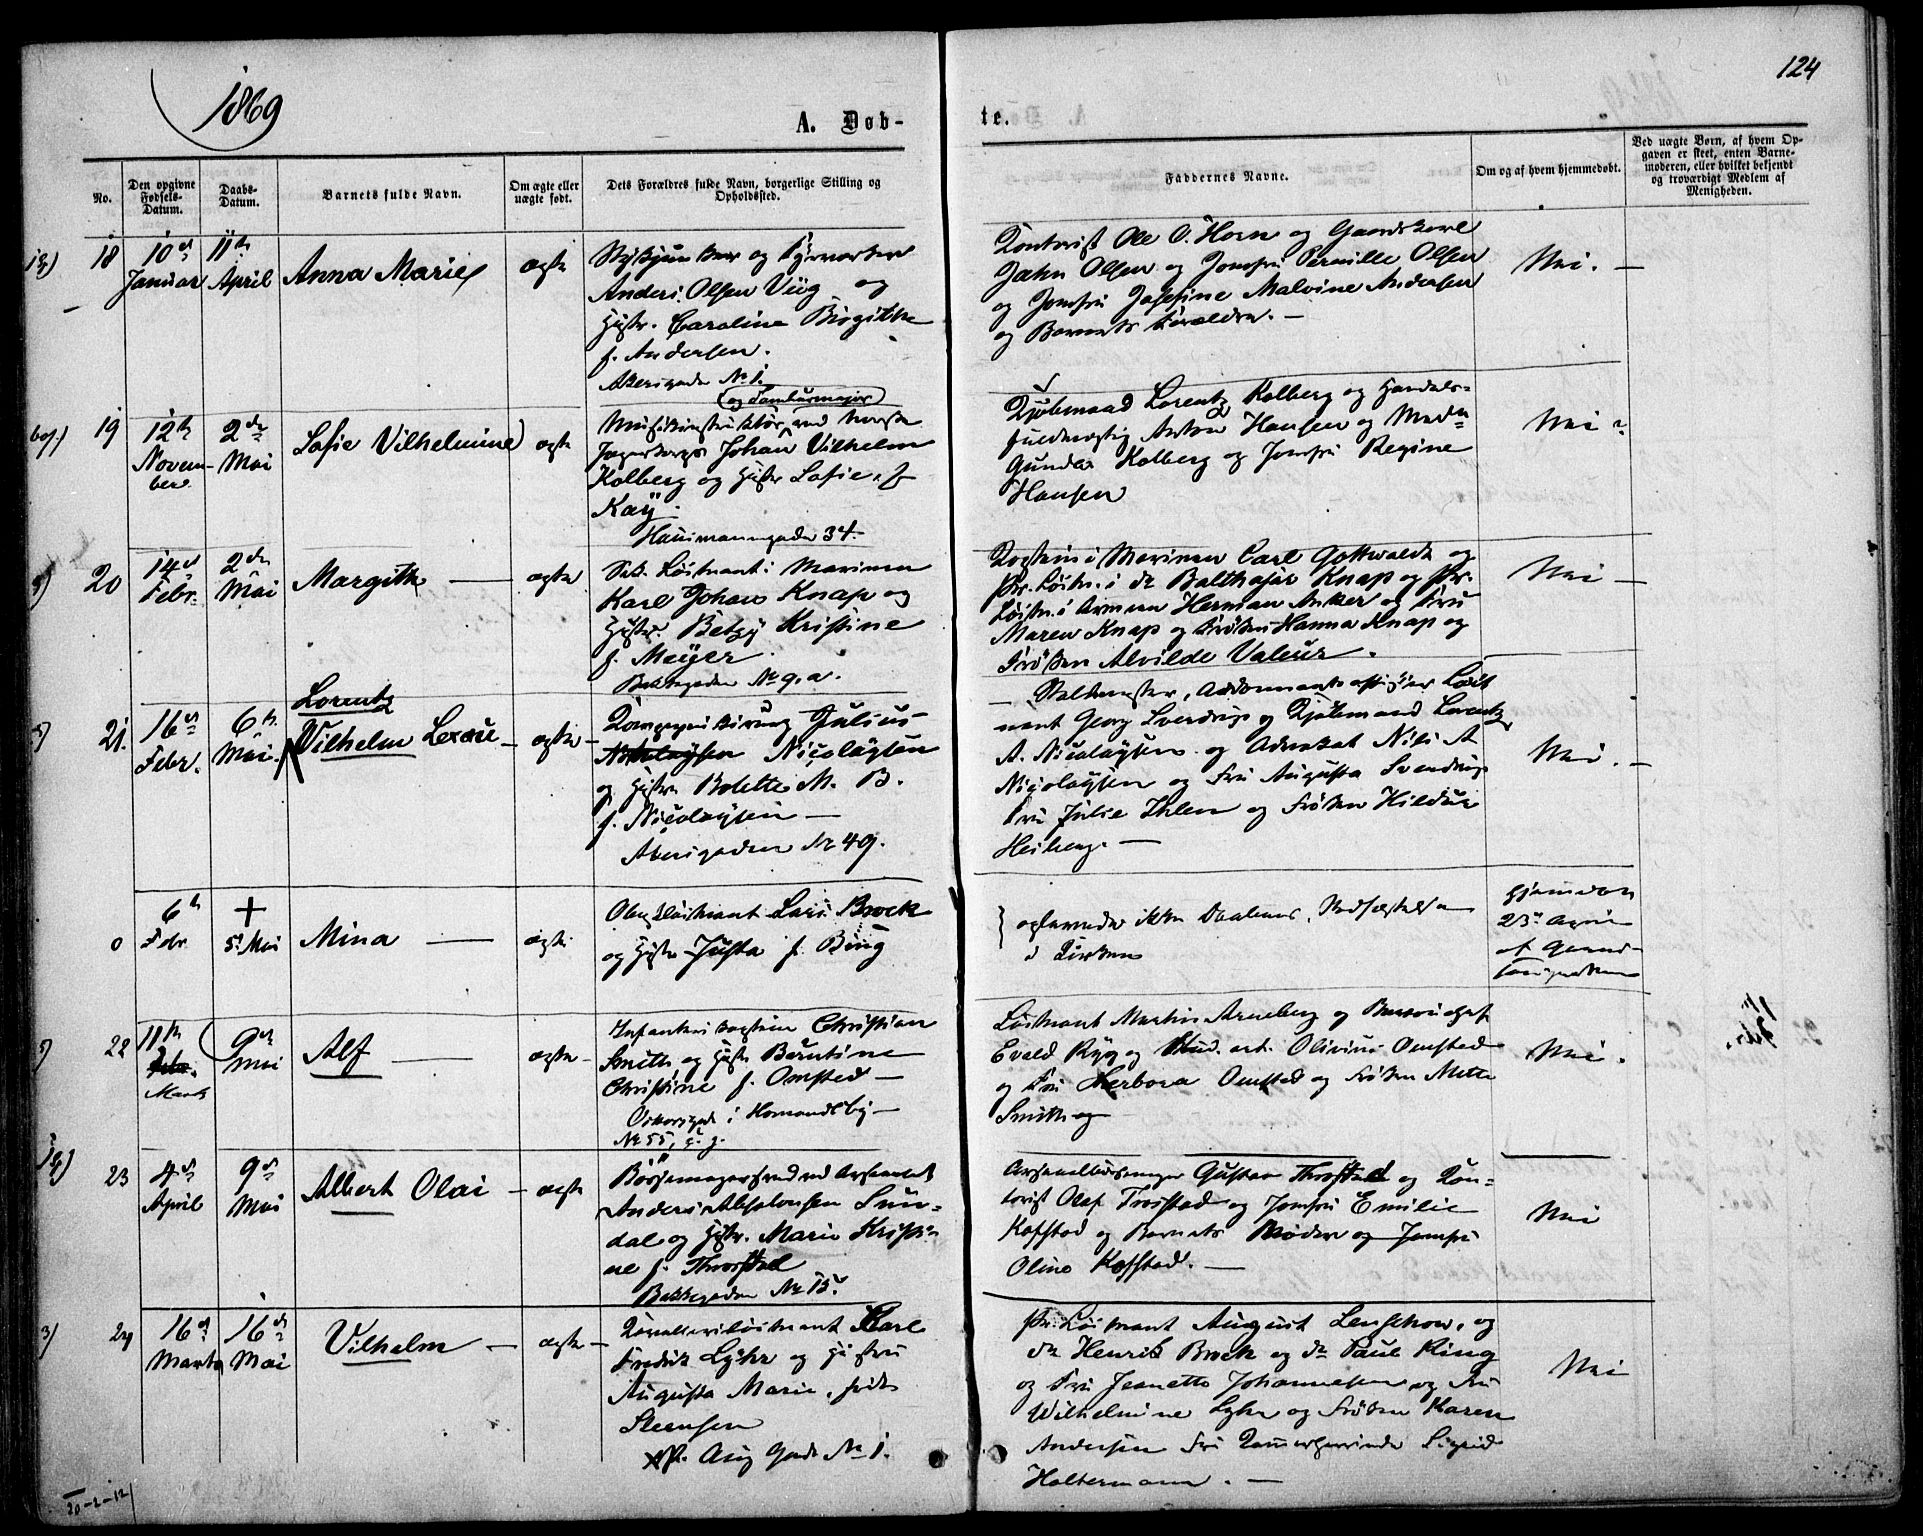 1869
124
A. Døb-
te.
No.
Den opgivne Fødsels-Datum.
Daabs-Datum.
Barnets fulde Navn.
Om ægte eller uægte født.
Dets Forældres fulde Navn, borgerlige Stilling og Opholdssted.
Faddernes Navne.
Om og af hvem hjemmedøbt.
Ved uægte Børn, af hvem Opgaven er skeet, enten Barnemoderen, eller hvilket bekjendt og troværdigt Medlem af Menigheden.
18
10de Januar
11te April
Anna Marie
ægte
og
Anders Olsen Viig og
Hustr. Caroline Birgitte
f. Andersen.
Akersgade No 1.
Kontorist Ole O. Horn og Gaardskarl
John Olsen og Jomfru Pernille Olsen
og Jomfru Josefine Malvine Andersen
og Barnets Forældre. —
Nei. —
19
12te November
2den Mai
Sofie Vilhelmine
ægte
(og Tambourmajor)
Musikinstruktør ved norske
Jægerkorps Johan Vilhelm
Kolberg og Hustr Sofie f.
Kay.
Hausmannsgade 34.
Kjøbmand Lorentz Kolberg og Handels-
fuldmægtig Anton Hansen og Mad
Gunda Kolberg og Jomfru Regine
Hansen
Nei
20
14de Febr.
2den Mai
Margith —
ægte
Sek. Løitnant i Marinen
Karl Johan Knap og
Hustr. Betzy Kristine
f. Meyer.
Bakkegaden No 9.a.
Kaptein i Marinen Carl Gottwaldt og
Pr. Løitn. i do Balthazar Knap og Pr.
Løitn. i Armeen Herman Anker og Fru
Maren Knap og Frøken Hanna Knap og
Frøken Alvilde Valeur.
Nei —
21.
16de Febr.
6te Mai.
Lorentz
Vilhelm Lexau —
ægte —
Kompagnikirurg Julius
Nicolaysen
og Hustr Bolette M. B.
f. Nicolaysen —
Akersgaden No 49.
— Staldmester,
Løitnant Georg Sverdrup og Kjøbmand Lorentz
A. Nicolaysen og Advokat Nils A
Nicolaysen og Fru Augusta Sverdrup
Fru Julie Ihlen og Frøken Hildur
Heiberg. —
Nei. —
0
6te Febr.
+
5te Mai
Mina —
ægte.
Løitnant Lars Brock
og Hustr Justa f. Bing
ikke Daabens Stadfæstelse
i Kirken
hjemdøbt
23de April
af
22
11te
Marts
9de Mai
Alf —
ægte —
Infanterikaptein Christian
Smith og Hustr Berntine
Christine f. Omsted —
Oskarsgade i Homansby —
No 55,
Løitnant Martin Arneberg og
Evald Rygg og Stud. art. Olivius Omsted
og Fru Herbora Omsted og Frøken Mette
Smith og
Nei.
23
4de April
9de Mai
Albert Olai —
ægte
Bøssemagersvend ved Arsenalet
Anders Absalonsen Sun-
dal og Hustr. Marie Kristi-
ne f. Throstad
Bakkegaden No 15.
Gustav Throstad og Kon-
torist Olaf Trosstad og Jomfru Emilie
Kofstad og Barnets Moder og Jomfru
Oline Kofstad. —
Nei
24
16de Marts
16de Mai
Vilhelm —
ægte —
Kavalleriløitnant Karl
Fredrik Lyhr og Hustru
Augusta Marie, født
Steensen
Aug Gade No 1.
Pr. Løitnant August Lenschow, og
do Henrik Brock og do Paul Ring
og Fru Jeanette Johannesen og Fru
Wilhelmine Lyhr og Frøken Karen
Andersen Fru Kammerherreinde Sigrid
Holtermann. —
Nei
20-2-12